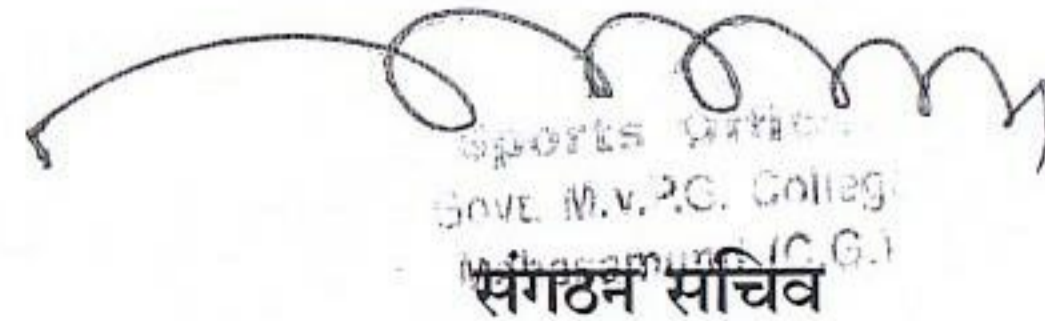 Sports
Govt. M.V.P.G. College
Mahasamund (C.G.)
संगठन सचिव